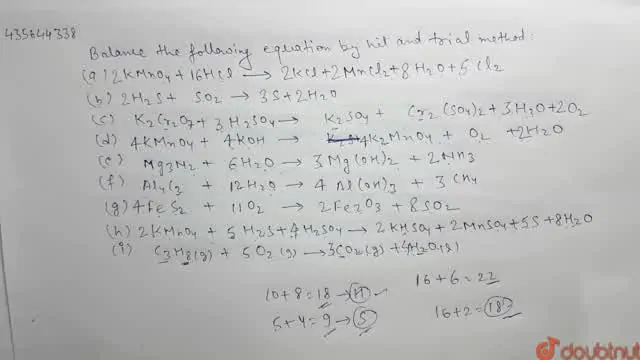 435644338
Balance the following equation by hit and trial method:
(a) 2KMnO4 + 16HCl → 2KCl + 2MnCl2 + 8H2O + 5Cl2
(b) 2H2S + SO2 → 3S + 2H2O
(c) K2Cr2O7 + 3H2SO4 → K2SO4 + Cr2(SO4)2 + 3H2O + 2O2
(d) 4KMnO4 + 4KOH → 4K2MnO4 + O2 + 2H2O
(e) Mg3N2 + 6H2O → 3Mg(OH)2 + 2NH3
(f) Al4C3 + 12H2O → 4Al(OH)3 + 3CH4
(g) 4FeS2 + 11O2 → 2Fe2O3 + 8SO2
(h) 2KMnO4 + 5H2S + 4H2SO4 → 2KHSO4 + 2MnSO4 + 5S + 8H2O
(i) C3H8(g) + 5O2(g) → 3CO2(g) + 4H2O(g)
10+8=18 → 11
16+6=22
5+4=9 → 5
16+2=18
doubtnut